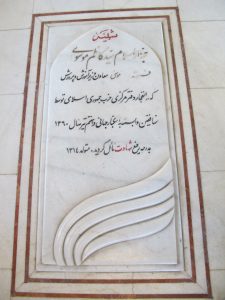 شهید
حجة الاسلام سید کاظم موسوی
فرزند موسی معاون وزیر آموزش و پرورش
که در انفجار دفتر مرکزی حزب جمهوری اسلامی توسط
منافقین وابسته به استکبار جهانی در هفتم تیر سال ۱۳۶۰
بدرجه رفیع شهادت نائل گردید. متولد ۱۳۱۷